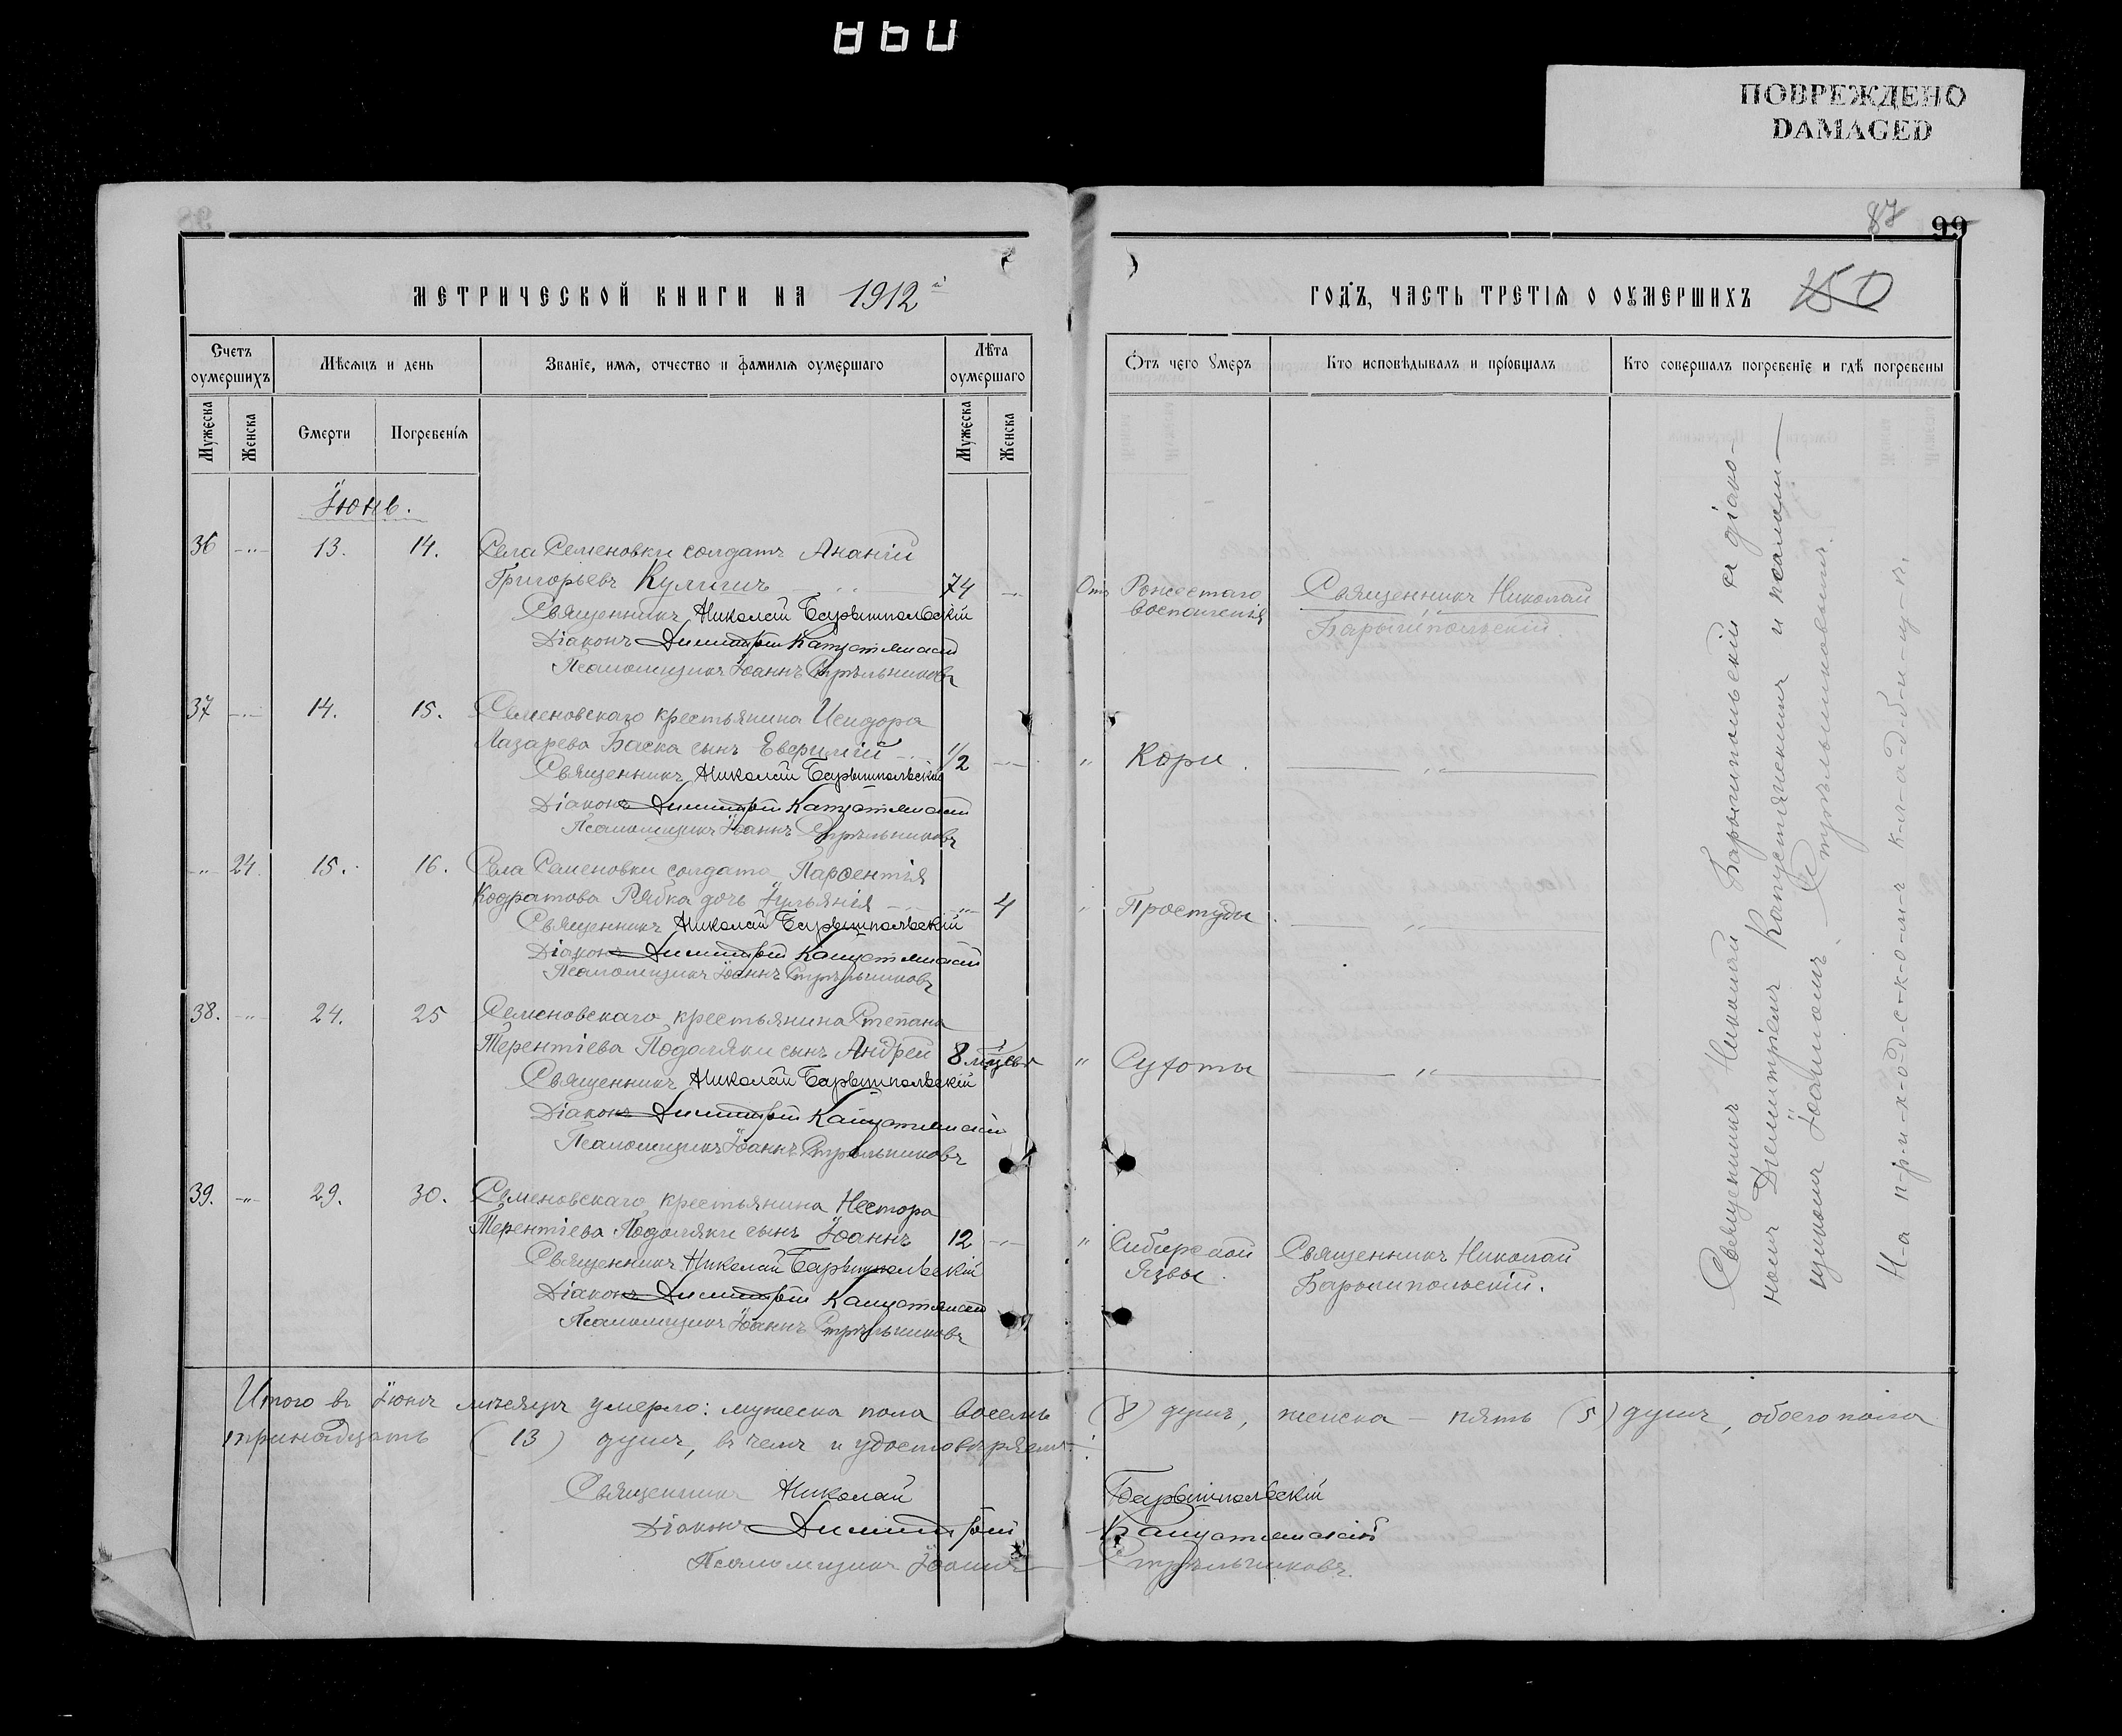 ПОВРЕЖДЕНО
DAMAGED
87 99
МЕТРИЧЕСКОЙ КНИГИ НА 1912 й
ГОДЪ, ЧАСТЬ ТРЕТІЯ О ОУМЕРШИХЪ 150
Счетъ оумершихъ
Мѣсяцъ и день
Званіе, имя, отчество и фамилія оумершаго
Лѣта оумершаго
Отъ чего умеръ
Кто исповѣдывалъ и пріобщалъ
Кто совершалъ погребеніе и гдѣ погребены
Мужеска
Женска
Смерти
Погребенія
Мужеска
Женска
Іюнь.
36 -"- 13. 14. Села Семеновки солдатъ Ананій
Григорьевъ Кулишъ 74 Отъ Рожестаго воспаленія Священникъ Николай Барышпольскій
Священникъ Николай Барышпольскій
Діаконъ Димитрій Капустянскій
Псаломщикъ Іоаннъ Стрѣльниковъ
37 -"- 14. 15. Семеновскаго крестьянина Исидора
Лазарева Баска сынъ Евфимій 1/2 " Кори. "
Священникъ Николай Барышпольскій
Діаконъ Димитрій Капустянскій
Псаломщикъ Іоаннъ Стрѣльниковъ
-"- 24. 15. 16. Села Семеновки солдата Парѳентія
Кодратова Рябка дочь Іульянія -"- 4 " Простуды. "
Священникъ Николай Барышпольскій
Діаконъ Димитрій Капустянскій
Псаломщикъ Іоаннъ Стрѣльниковъ
38. -"- 24. 25 Семеновскаго крестьянина Степана
Терентіева Подоляки сынъ Андрей 8 мѣсяц. " Сухоты "
Священникъ Николай Барышпольскій
Діаконъ Димитрій Капустянскій
Псаломщикъ Іоаннъ Стрѣльниковъ
39. -"- 29. 30. Семеновскаго крестьянина Нестора
Терентіева Подоляки сынъ Іоаннъ 12 -"- " Сибирской язвы. Священникъ Николай Барышпольскій.
Священникъ Николай Барышпольскій
Діаконъ Димитрій Капустянскій
Псаломщикъ Іоаннъ Стрѣльниковъ
Священникъ Николай Барышпольскій съ діако-
номъ Димитріемъ Капустянскимъ и псалом-
щикомъ Іоанномъ Стрѣльниковымъ.
Н-а п-р-и-х-о-д-с-к-о-м-ъ к-л-а-д-б-и-щ-ѣ.
Итого въ Іюнѣ мѣсяцѣ умерло: мужеска пола восемь (8) душъ, женска – пять (5) душъ, обоего пола
тринадцать (13) душъ, въ чемъ и удостовѣряемъ:
Священникъ Николай Барышпольскій
Діаконъ Димитрій Капустянскій
Псаломщикъ Іоаннъ Стрѣльниковъ.